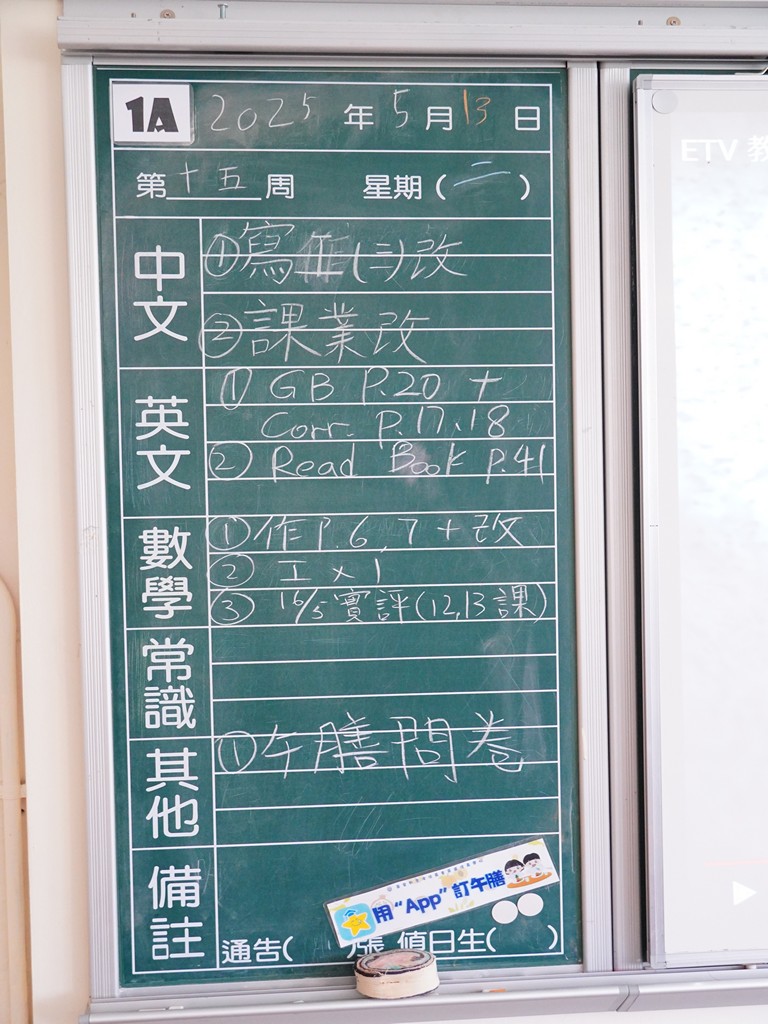 1A 2025 年 5 月 13 日
第十五周 星期(二)
ETV 教
中文
①寫作(三)改
②課業改
英文
① GB P.20 +
Corr. P.17、18
② Read Book p.41
數學
①作P.6、7 + 改
② I x 1
③ 16/5實評(12,13課)
常識
其他
①午膳問卷
備註
用“App”訂午膳
通告( )張 值日生( )